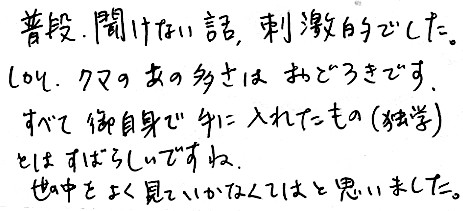 普段、聞けない話、刺激的でした。
しかし、クマのあの多さはおどろきです。
すべて御自身で手に入れたもの(独学)
とはすばらしいですね。
世の中をよく見ていかなくてはと思いました。